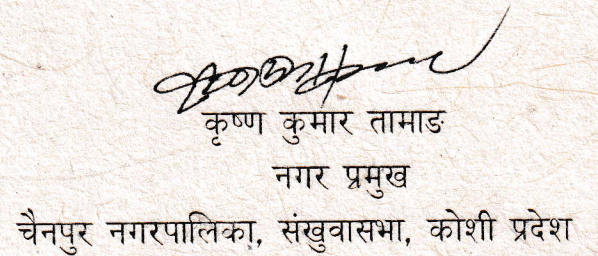 कृष्ण कुमार तामाङ
नगर प्रमुख
चैनपुर नगरपालिका, संखुवासभा, कोशी प्रदेश